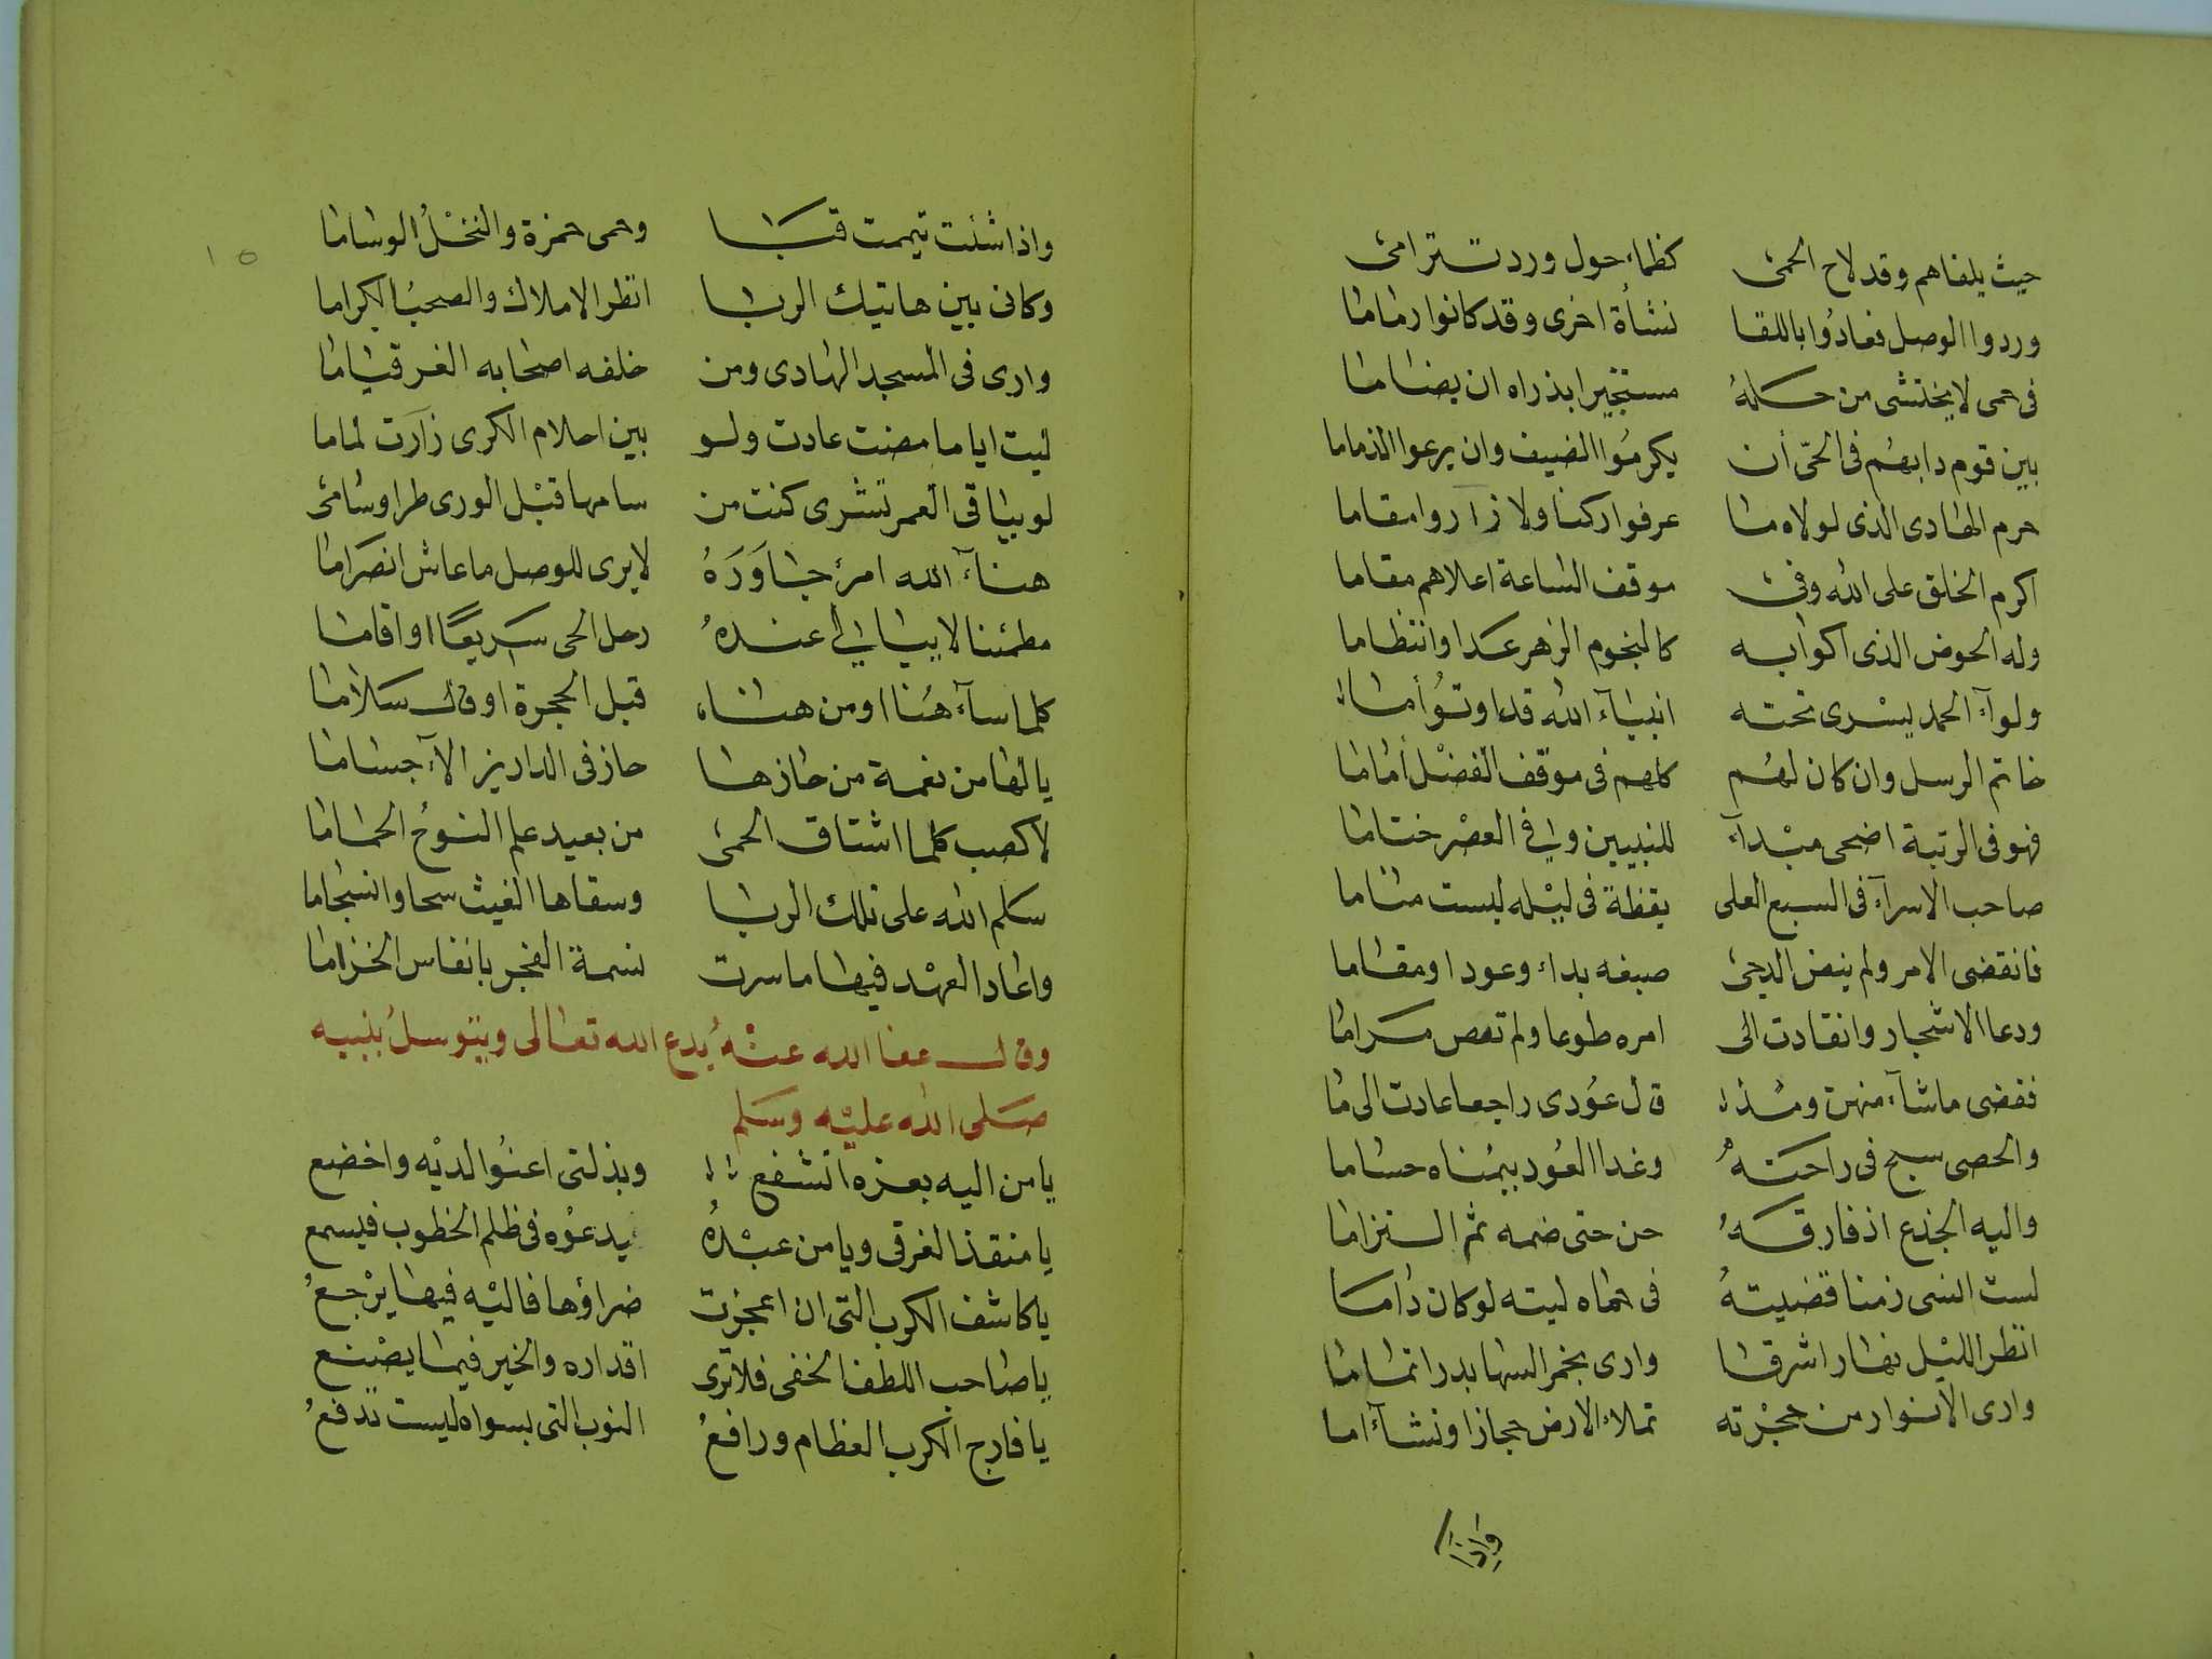 حيث يلفاهم وقد لاح الحمى كظماء حول ورد تترامى
وردوا الوصل فعادوا باللقا نشأة اخرى وقد كانوا رماما
فى حمى لا يختشى من حله مستجيرا بذراه ان يضاما
بين قوم دابهم فى الحى أن يكرموا الضيف وان يرعوا الذماما
حرم الهادى الذى لولاه ما عرفوا ركنا ولا زاروا مقاما
اكرم الخلق على الله وفى موقف الساعة اعلاهم مقاما
وله الحوض الذى اكوابه كالنجوم الزهر عدا وانتظاما
ولوآء الحمد يسرى تحته انبيآء الله قدما وتؤاما
خاتم الرسل وان كان لهم كلهم فى موقف الفضل أماما
فهو فى الرتبة اضحى مبدآء للنبيين وفى العصر ختاما
صاحب الاسرآء فى السبع العلى يقظة فى ليله ليست مناما
فانقضى الامر ولم ينض الدجى صبغه بداء وعودا ومقاما
ودعا الاشجار وانقادت الى امره طوعا ولم تعص مراما
فقضى ماشآء منهن ومذ قال عودى راجعا عادت الى ما
والحصى سبح فى راحته وغدا العود بيمناه حساما
واليه الجذع اذ فارقه حن حتى ضمه ثم التزاما
لست انسى زمنا قضيته فى حماه ليته لو كان داما
انظر الليل نهارا اشرقا وارى نجم السها بدرا تماما
وارى الانوار من حجرته تملاء الارض حجازا وشآءاما
واذا
١٥
واذا شئت تيممت قبا وحمى حمزة والنخل الوساما
وكانى بين هاتيك الربا انظر الاملاك والصحب الكراما
وارى فى المسجد الهادى ومن خلفه اصحابه الغر قياما
ليت اياما مضت عادت ولو بين احلام الكرى زارت لماما
لو بباقى العمر تشرى كنت من سامها قبل الورى طرا وسامى
هنآء الله امرء جاوره لا يرى للوصل ما عاش انصراما
مطمئنا لا يبالى عنده رحل الحى سريعا او اقاما
كلما سآء هنا او من هناء قبل الحجرة او قال سلاما
يالها من نعمة من حازها حاز فى الدارين الآء جساما
لا كصب كلما اشتاق الحمى من بعيد علم النوح الحماما
سلم الله على تلك الربا وسقاها الغيث سحا وانسجاما
واعاد العهد فيها ما سرت نسمة الفجر بانفاس الخزاما
وقال عفا الله عنه يدع الله تعالى ويتوسل بنبيه
صلى الله عليه وسلم
يا من اليه بعزه اتشفع وبذلتى اعنوا لديه واخضع
يا منقذ الغرقى ويا من عبده يدعوه فى ظلم الخطوب فيسمع
يا كاشف الكرب التى ان اعجزت ضراؤها فاليه فيها يرجع
يا صاحب اللطف الخفى فلا ترى اقداره والخير فيما يصنع
يا فارج الكرب العظام ورافع النوب التى بسواه ليست تدفع